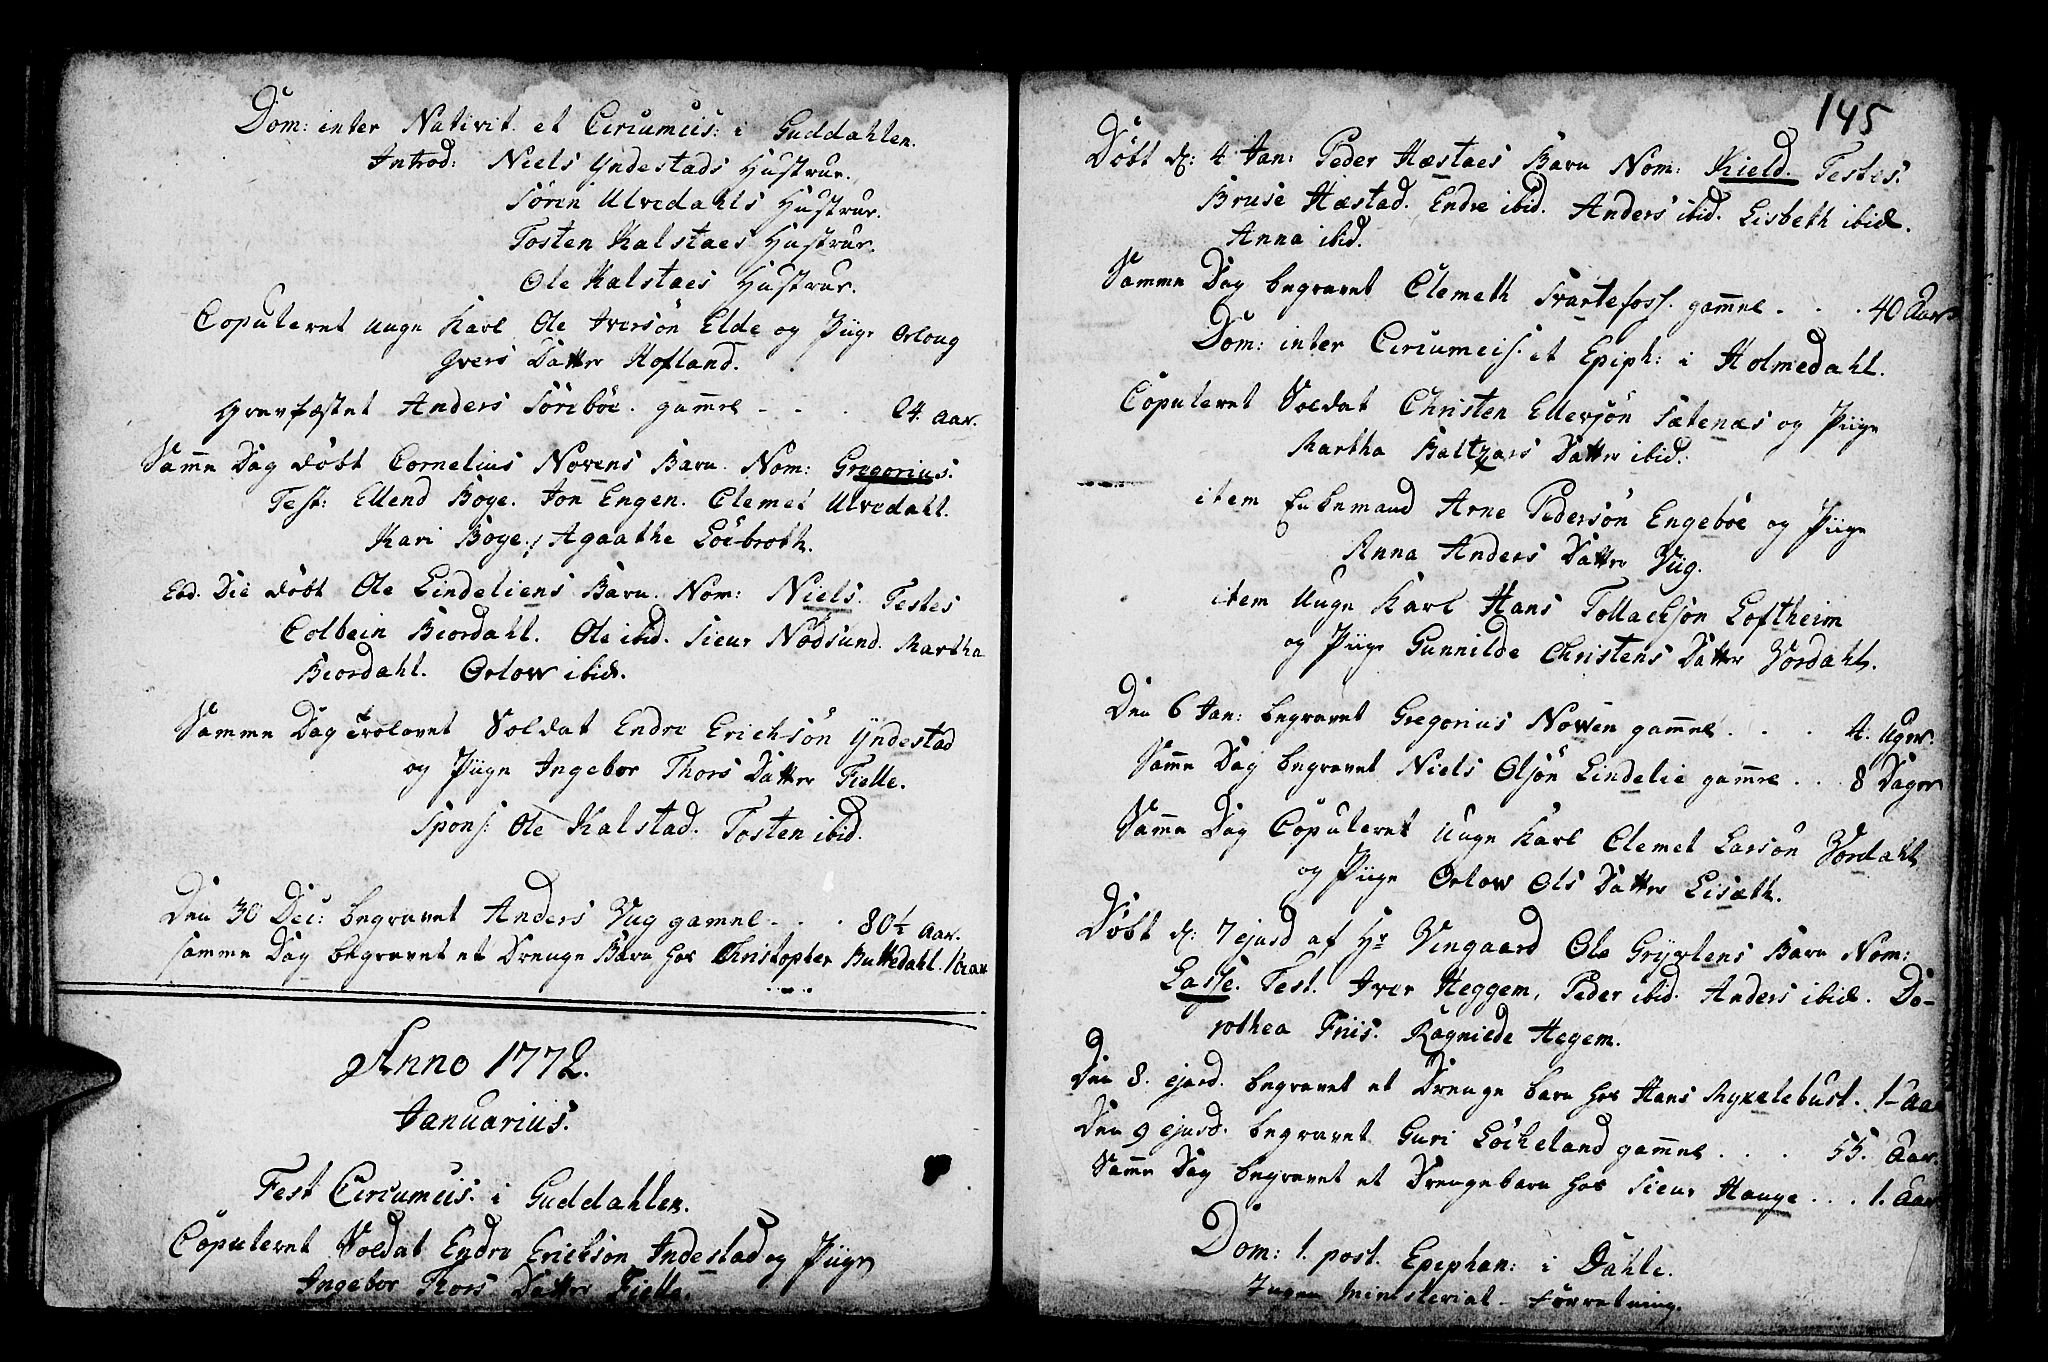 Dom: inter Nativit. et Circumcis: i Guddahlen.
Introd: Niels Yndestads Hustrue.
Sören Ulvedahls Hustrue.
Tosten Kalstaes Hustrue.
Ole Kalstaes Hustrue.
Copuleret unge Karl Ole Iversön Elde og Piige Orloug
Ivers Datter Hofland.
Gravfæstet Anders Söreböe. gamle - - . 24. Aar.
Samme Dag döbt Cornelius Novens Barn. Nom: Gregorius.
Test: Ellend Böge. Jon Engen. Clemet Ulvedahl.
Kari Böge, Agaathe Löebroth.
Eod. Die döbt Ole Lindeliens Barn. Nom: Niels. Testes
Colbein Biordahl. Ole ibid. Sieur Nödsund. Martha
Biordahl. Orlow ibid.
Samme Dag trolovet Soldat Endre Erichsön Yndestad
og Piige Ingebor Thors Datter Fielle.
Spons: Ole Kalstad. Tosten ibid.
Den 30 Dec: begravet Anders Vug gamel - - . 80½ Aar.
Samme Dag begravet et Drenge Barn hos Christopher Buttedahl.
Anno 1772.
Januarius.
Fest Circumcis. i Guddahlen.
Copuleret Soldat Endre Erichsön Indestad og Piige
Ingebor Thors Datter Fielle.
145
Döbt d: 4 Jan: Peder Hæstaes Barn Nom: Kield. Testes.
Bruse Hæstad. Endre ibid. Anders ibid. Lisbeth ibid.
Anna ibid.
Samme Dag begravet Clemeth Svartefoss. gamel . . . 40 Aar.
Dom: inter Circumcis. et Epiph: i Holmedahl.
Copuleret Soldat Christen Ellersön Sætenæs og Piige
Martha Baltzars Datter ibid.
item Enkemand Arne Pedersön Engeböe og Piige
Anna Anders Datter Vug.
item Unge Karl Hans Tollachsön Loftheim
og Piige Gunnilde Christens Datter Vordahl.
Den 6 Jan: begravet Gregorius Nowen gammel . . . 4. Uger.
Samme Dag begravet Niels Olsön Lindelie gamle . . . 8 Dage
Samme Dag Copuleret Unge Karl Clemet Larsön Vordahl
og Piige Orlow Ols Datter Lisæth.
Döbt d: 7 ejusd af Hr Vingaard Ole Gryttens Barn Nom:
Lasse. Test. Iver Heggem, Peder ibid. Anders ibid. Do-
rothea Friis. Ragniede Hegem.
Den 8. ejusd. begravet et Drenge barn hos Hans Myxlebust. 1- Aar
Den 9 ejusd. begravet Guri Löcheland gammel . . . 55. Aar.
Samme Dag begravet et Drengebarn hos Sieur Hauge . . . 1. Aar
Dom: 1. post. Epephan: i Dahle.
Ingen Ministerial-Forretning.